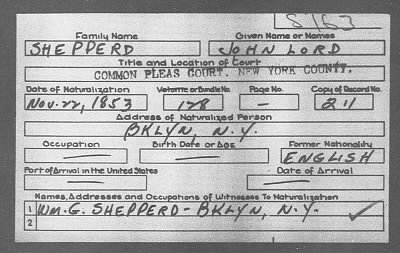 S163
Family Name Given Name or Names
SHEPPERD JOHN LORD
Title and Location of Court
COMMON PLEAS COURT. NEW YORK COUNTY.
Date of Naturalization Volume or Bundle No. Page No. Copy of Record No.
Nov. 22, 1853 128 — 211
Address of Naturalized Person
BKLYN, N.Y.
Occupation Birth Date or Age Former Nationality
— — ENGLISH
Port of Arrival in the United States Date of Arrival
— —
Names, Addresses and Occupations of Witnesses To Naturalization
1 WM. G. SHEPPERD - BKLYN, N.Y. ✓
2